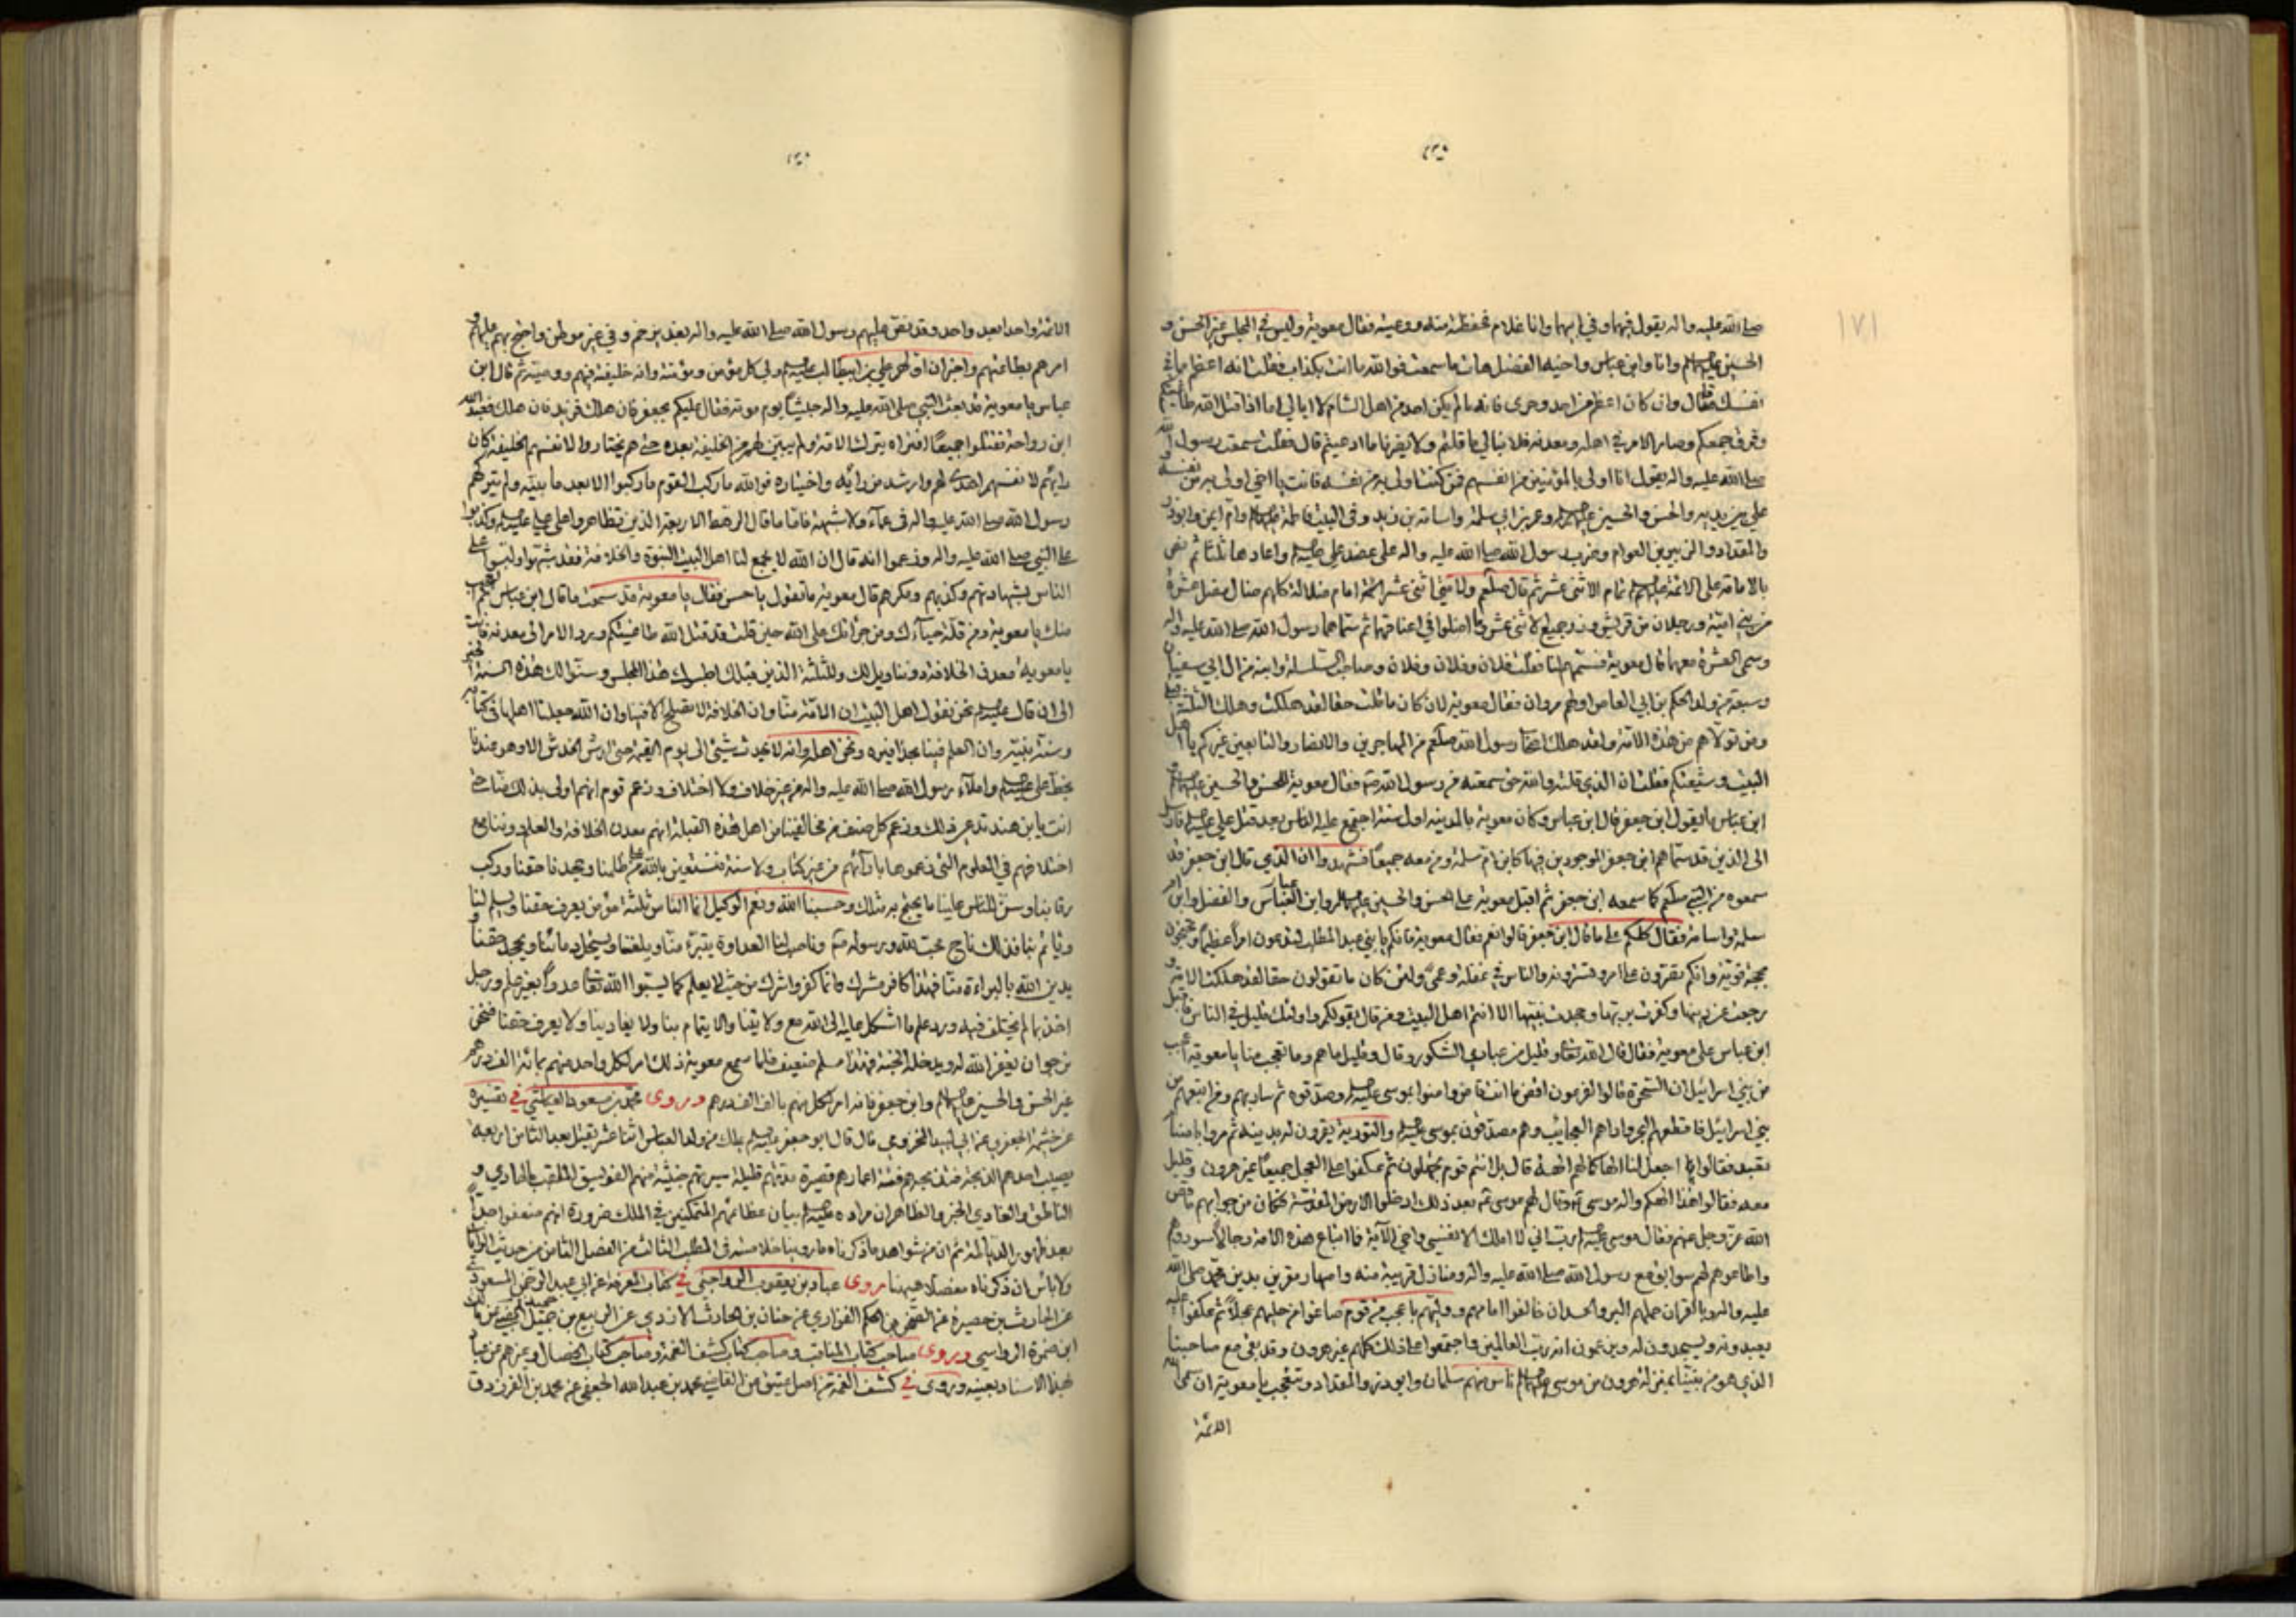 صلى الله عليه واله يقول فيهما وفي ابيهما وانا غلام فحفظته منه ووعيته فقال معوية وليس في المجلس غير الحسن و
الحسين عليهم وانا وابن عباس واخيه الفضل هات ما سمعت فوالله ما انت بكذاب فقلت انه اعظم مما في
نفسك فقال وان كان اعظم من احد وحرى فانه ما لم يكن احد من اهل الشام لا ابالي اما اذا قتل الله طاغيتكم
وفرق جمعكم وصار الامر في اهله ومعدنه فلا نبالي ما قلتم ولا يضرنا ما ادعيتم قال فقلت سمعت رسول الله
صلى الله عليه واله يقول انا اولى بالمؤمنين من انفسهم فمن كنت اولى به من نفسه فانت يا اخي اولى به من نفسه و
علي بين يديه والحسن والحسين وعمر بن ابي سلمة واسامة بن زيد وفي البيت فاطمة وام ايمن وابوذر
والمقداد والزبير بن العوام وضرب رسول الله صلى الله عليه واله على عضد علي واعادها ثلثا ثم نص
بالامامة على الائمة تمام الاثنى عشر ثم قال صلعم ولامتي اثنى عشر ائمة امام ضلالة كلهم ضال مضل عشرة
من بني امية ورجلان من قريش وزر جميع الاثنى عشر وما اضلوا في اعناقهما ثم سماهما رسول الله صلى الله عليه واله
وسمى العشرة معهما قال معوية فسمهم لنا فقلت فلان وفلان وفلان وصاحب السلسلة وابنه من ال ابي سفيان
وسبعة من ولد الحكم بن ابي العاص اولهم مروان فقال معوية لان كان ما قلت حقا لقد هلكت وهلك الثلثة قبلي
ومن تولاهم من هذه الامة ولقد هلك اصحاب رسول الله صلعم من المهاجرين والانصار والتابعين غيركم يا اهل
البيت وشيعتكم فقلت ان الذي قلت والله حق سمعته من رسول الله فقال معوية للحسن والحسين
ابن عباس ما يقول ابن جعفر قال ابن عباس وكان معوية بالمدينة اول سنة اجتمع عليه الناس بعد قتل علي فارسل
الى الذين قد سماهم ابن جعفر الموجودين فيها كابن ام سلمة ومن معه جميعا فشهدوا ان الذي قال ابن جعفر قد
سمعوه من النبي صلعم كما سمعه ابن جعفر ثم اقبل معوية على الحسن والحسين وابن العباس والفضل وابن ام
سلمة واسامة فقال كلكم على ما قال ابن جعفر قالوا نعم فقال معوية فانكم يا بني عبد المطلب لتدعون امرا عظيما وتحتجون
بحجة قوية وانكم تقرون على امر وتسترونه والناس في غفلة وعمى ولئن كان ما تقولون حقا لقد هلكت الامة و
رجعت عن دينها وكفرت بربها وجحدت نبيها الا انتم اهل البيت ومن قال بقولكم واولئك قليل في الناس فاقبل
ابن عباس على معوية فقال قال الله تعالى وقليل من عبادي الشكور وقال وقليل ما هم وما تعجب منا يا معوية اعجب
من بني اسرائيل ان السحرة قالوا لفرعون اقض ما انت قاض وامنوا بموسى وصدقوه ثم سار بهم ومن اتبعهم من
بني اسرائيل فاقطعهم البحر واراهم العجائب وهم مصدقون بموسى والتورية يقرون له بدينه ثم مروا باصنام
تعبد فقالوا يا اجعل لنا الها كما لهم الهة قال بل انتم قوم تجهلون ثم عكفوا على العجل جميعا غير هرون وقليل
معه فقالوا هذا الهكم واله موسى وقال لهم موسى بعد ذلك ادخلوا الارض المقدسة فكان من جوابهم ما قص
الله عز وجل عنهم فقال موسى رب اني لا املك الا نفسي واخي الآية فما اتباع هذه الامة رجالا سودوهم
واطاعوهم لهم سوابق مع رسول الله صلى الله عليه واله ومنازل قريبة منه واصهار مقرين بدين محمد صلى الله
عليه واله وبالقران حملهم الكبر والحسد ان خالفوا امامهم ووليهم باعجب من قوم صاغوا من حليهم عجلا ثم عكفوا عليه
يعبدونه ويسجدون له ويزعمون انه رب العالمين واجتمعوا على ذلك كلهم غير هرون وقد بقى مع صاحبنا
الذي هو من نبينا بمنزلة هرون من موسى ناس منهم سلمان وابوذر والمقداد وتتعجب يا معوية ان سمى الله
الائمة
الائمة واحدا بعد واحد وقد نص عليهم رسول الله صلى الله عليه واله بغدير خم وفي غير موطن واحتج بهم عليهم و
امرهم بطاعتهم واخبر ان اولهم علي بن ابيطالب ولي كل مؤمن ومؤمنة وانه خليفته فيهم ووصيه ثم قال ابن
عباس يا معوية قد بعث النبي صلى الله عليه واله جيشا يوم موتة فقال عليكم بجعفر فان هلك فزيد فان هلك فعبد الله
ابن رواحة فقتلوا جميعا افتراه يترك الامة ولم يبين لهم من الخليفة بعده حتى هم يختاروا لانفسهم الخليفة كان
رايهم لانفسهم اهدى لهم وارشد من رأيه واختياره فوالله ما ركب القوم ما ركبوا الا بعد ما بينه ولم يتركهم
رسول الله صلى الله عليه واله في عماء ولا شبهة فاما ما قال الرهط الاربعة الذين تظاهروا على علي وكذبوا
على النبي صلى الله عليه واله وزعموا انه قال ان الله لا يجمع لنا اهل البيت النبوة والخلافة فقد شبهوا ولبسوا على
الناس بشهادتهم وكذبهم ومكرهم قال معوية ما تقول يا حسن فقال يا معوية قد سمعت ما قال ابن عباس العجب
منك يا معوية ومن قلة حياءك ومن جراتك على الله حين قلت قد قتل الله طاغيتكم ورد الامر الى معدنه فانت
يا معوية معدن الخلافة دوننا ويل لك وللثلثة الذين قبلك اجلسوك هذا المجلس وسنوا لك هذه السنة
الى ان قال نحن نقول اهل البيت ان الائمة منا وان الخلافة لا تصلح الا فينا وان الله جعلنا اهلها في كتابه
وسنة نبيه وان العلم فينا بحذافيره ونحن اهله وانه لا يحدث شئ الى يوم القيمة حتى ارش الخدش الا وهو عندنا
بخط علي واملاء رسول الله صلى الله عليه واله من غير خلاف ولا اختلاف وزعم قوم انهم اولى بذلك منا حتى
انت يا بن هند تدعي ذلك وزعم كل صنف من مخالفينا من اهل هذه القبلة انهم معدن الخلافة والعلم دوننا مع
اختلافهم في العلوم التي زعموها بارآئهم من غير كتاب ولا سنة فنستعين بالله على من ظلمنا وجحدنا حقنا وركب
رقابنا وسن للناس علينا ما يحتج به مثلك وحسبنا الله ونعم الوكيل انما الناس ثلثة مؤمن يعرف حقنا ويسلم لنا
وياتم بنا فذلك ناج محب لله ورسوله وناصب لنا العداوة يتبرء منا ويلعننا ويستحل دمائنا ويجحد حقنا و
يدين الله بالبراءة منا فهذا كافر مشرك وانما كفر واشرك من حيث لا يعلم كما يسبوا الله عدوا بغير علم ورجل
اخذ بما لم يختلف فيه ورد علم ما اشكل عليه الى الله مع ولايتنا والايتمام بنا ولا يعادينا ولا يعرف حقنا فنحن
نرجو ان يغفر الله له ويدخله الجنة فهذا مسلم ضعيف فلما سمع معوية ذلك امر لكل واحد منهم بمائة الف درهم
غير الحسن والحسين وابن جعفر فانه امر لكل منهم بالف الف درهم وروى محمد بن مسعود العياشي في تفسيره
عن خيثمة الجعفري عن ابي لبيد المخزومي قال قال ابو جعفر يملك من ولد العباس اثنا عشر يقتل بعد الثامن اربعة
يصيب احدهم الذبحة فتذبحه هم فئة اعمارهم قصيرة مدتهم قليلة سيرتهم خبيثة منهم الفويسق الملقب بالهادي و
الناطق والغادي الخبر والظاهر ان مراده بيان عظمائهم المتمكنين في الملك ضرورة انهم ضعفوا جدا
بعد ظهور الديالمة ثم ان من شواهد ما ذكرناه ما روينا خلاصته في المطلب الثالث من الفصل الثامن من حديث الرايات
ولا باس ان ذكرناه مفصلا هيهنا روى عباد بن يعقوب الرواجني في كتاب المعرفة عن ابي عبد الرحمن المسعودي
عن الحارث بن حصيرة عن الصخر بن الحكم الفزاري عن حنان بن الحارث الازدي عن الربيع بن جميل الضبي عن مالك
ابن ضمرة الرواسي وروى صاحب كتاب المناقب وصاحب كتاب كشف الغمة وصاحب كتاب الخصال وغيرهم عن عباد
بهذا الاسناد بعينه وروى في كشف الغمة من اصل عتيق عن القاضي محمد بن عبد الله الجعفي عن محمد بن الفرزدق